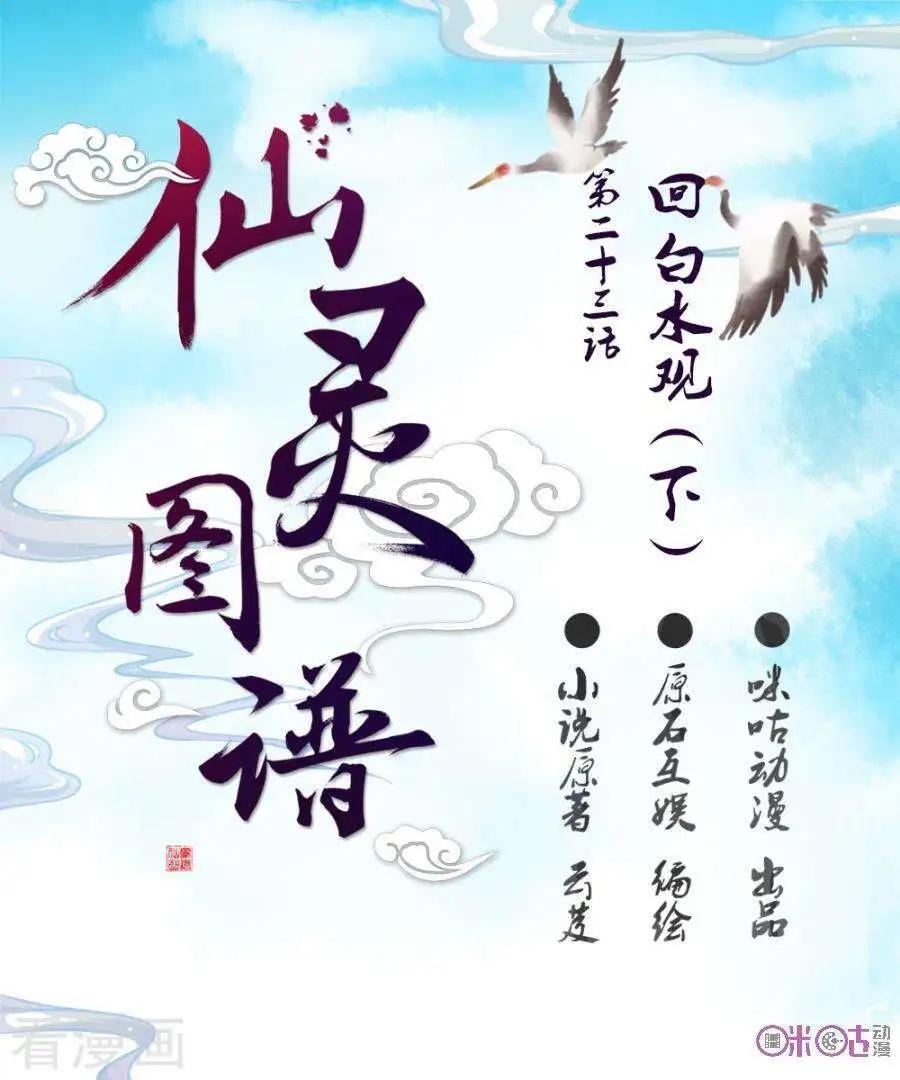 仙灵图谱
第二十三话
回白水观(下)
咪咕动漫 出品
原石互娱 编绘
小说原著 云芨
看漫画
咪咕动漫